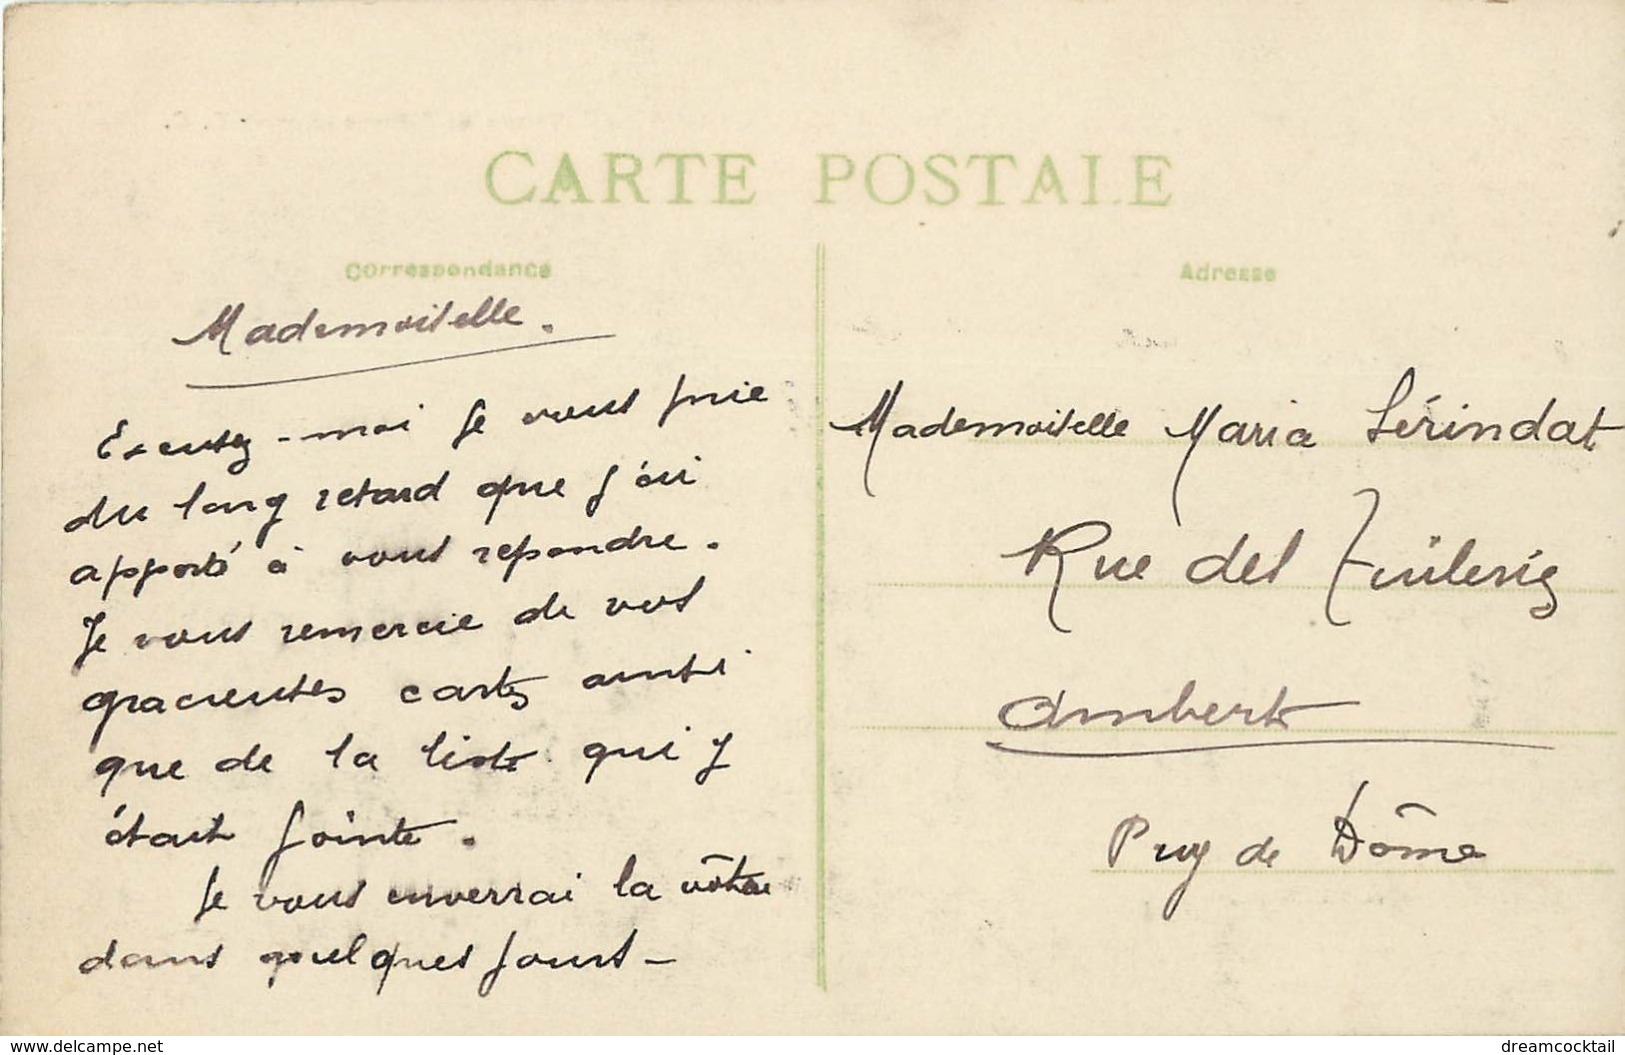 CARTE POSTALE
Correspondance
Adresse
Mademoiselle.
Excusez-moi Je vous prie
du long retard que j'ai
apporté à vous repondre.
Je vous remercie de vos
gracieuses cartes ainsi
que de la liste qui y
était jointe.
Je vous enverrai la vôtre
dans quelques jours-
Mademoiselle Maria Sérindat
Rue des Tuileries
Ambert
Puy de Dôme
www.delcampe.net
dreamcocktail